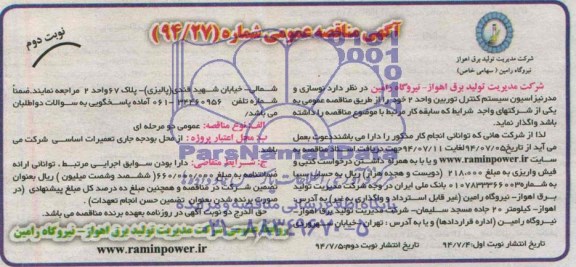 آگهی مناقصه عمومی شماره (۹۴/۲۷)
نوبت دوم
شرکت مدیریت تولید برق اهواز
نیروگاه رامین ( سهامی خاص)
شرکت مدیریت تولید برق اهواز- نیروگاه رامین در نظر دارد نوسازی و
مدرنیزاسیون سیستم کنترل توربین واحد ۲ خود را از طریق مناقصه عمومی به
یکی از شرکتهای واجد شرایط که سابقه کار مرتبط با موضوع مناقصه را داشته
باشد واگذار نماید.
لذا از شرکت هائی که توانائی انجام کار مذکور را دارا می باشند دعوت بعمل
می آید از تاریخ ۹۴/۷/۰۵ لغایت ۹۴/۰۷/۱۱ جهت دریافت اسناد مناقصه به
سایت www.raminpower.ir و یا با به همراه داشتن درخواست کتبی و
فیش واریزی به مبلغ ۲۱۸.۰۰۰ (دویست و هجده هزار) ریال به حساب سیبا
به شماره ۰۱۰۷۸۳۳۳۶۶۰۰۳ بانک ملی ایران در وجه شرکت مدیریت تولید
برق اهواز- نیروگاه رامین (غیر قابل استرداد و واگذاری به غیر) به آدرس:
اهواز- کیلومتر ۲۰ جاده مسجد سلیمان- شرکت مدیریت تولید برق اهواز-
نیروگاه رامین (اداره قراردادها) و یا به آدرس : تهران- خیابان
شمالی- خیابان شهید قندی(پالیزی)- پلاک ۶۷ واحد ۲ مراجعه نمایند.ضمناً
شماره تلفن ۰۶۱-۳۴۴۶۰۹۵۶ آماده پاسخگویی به سوالات داوطلبان
می باشد.
الف- نوع مناقصه: عمومی دو مرحله ای
ب- محل اعتبار پروژه : از محل بودجه جاری تعمیرات اساسی شرکت می
باشد.
ج- شرایط متقاضی: دارا بودن سوابق اجرایی مرتبط ، توانائی ارائه
ضمانتنامه به مبلغ (ششصد و شصت میلیون ) ریال بعنوان
تضمین شرکت در مناقصه و همچنین مبلغ ده درصد کل مبلغ پیشنهادی (در
صورت برنده شدن بعنوان تضمین حسن انجام تعهدات).
حق الدرج دو نوبت آگهی در روزنامه بعهده برنده مناقصه می باشد.
روابط عمومی شرکت مدیریت تولید برق اهواز- نیروگاه رامین
www.raminpower.ir
تاریخ انتشار نوبت اول:۹۴/۷/۴ تاریخ انتشار نوبت دوم:۹۴/۷/۵
ParsNamadData
۰۲۱-۸۸۳۴۹۶۷۰-۵